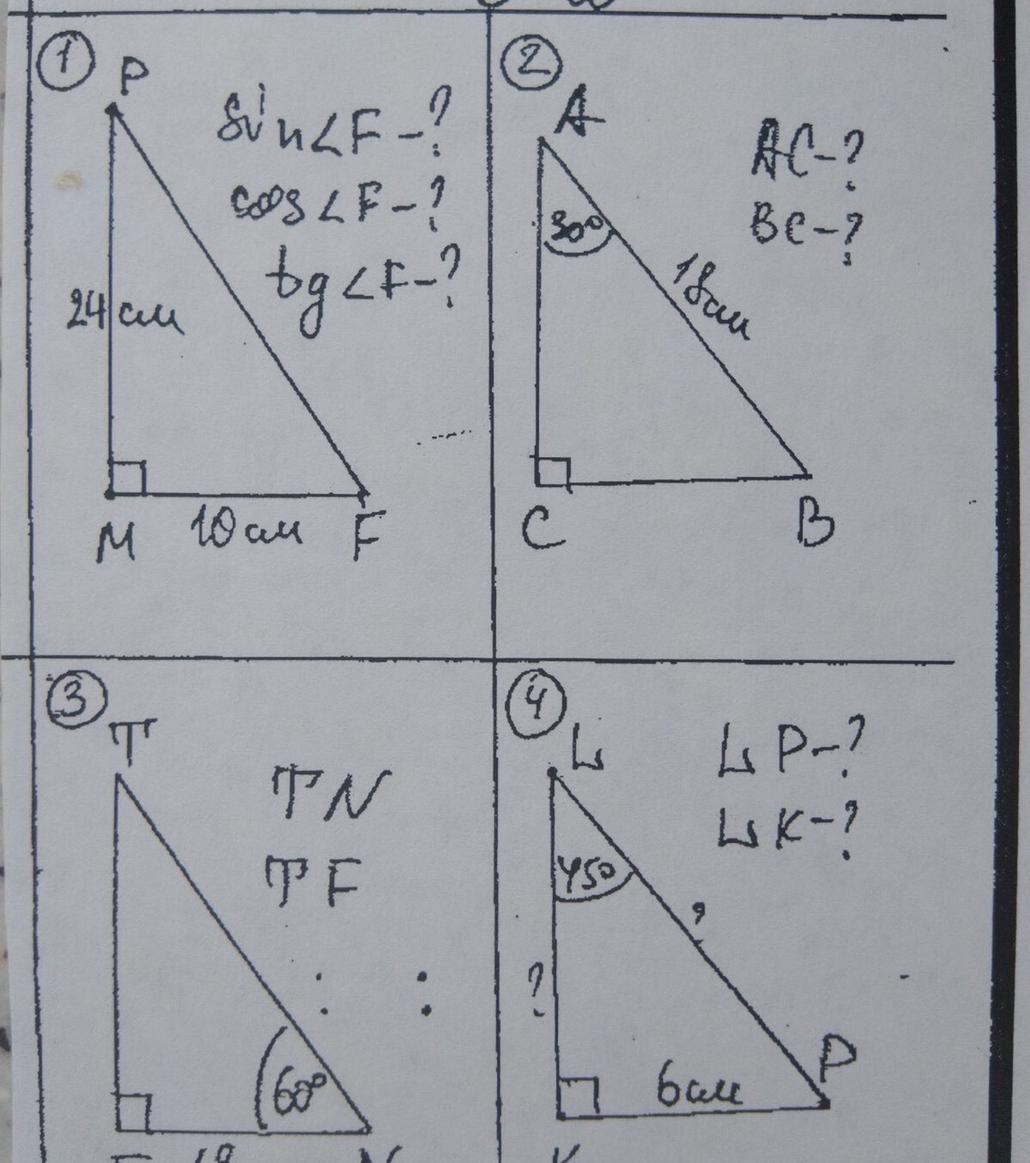 1
P
sin∠F-?
cos∠F-?
tg∠F-?
24см
M
10см
F
2
A
AC-?
BC-?
30°
18см
C
B
3
T
TN
TF
60°
4
L
LP-?
LK-?
45°
?
?
6см
P